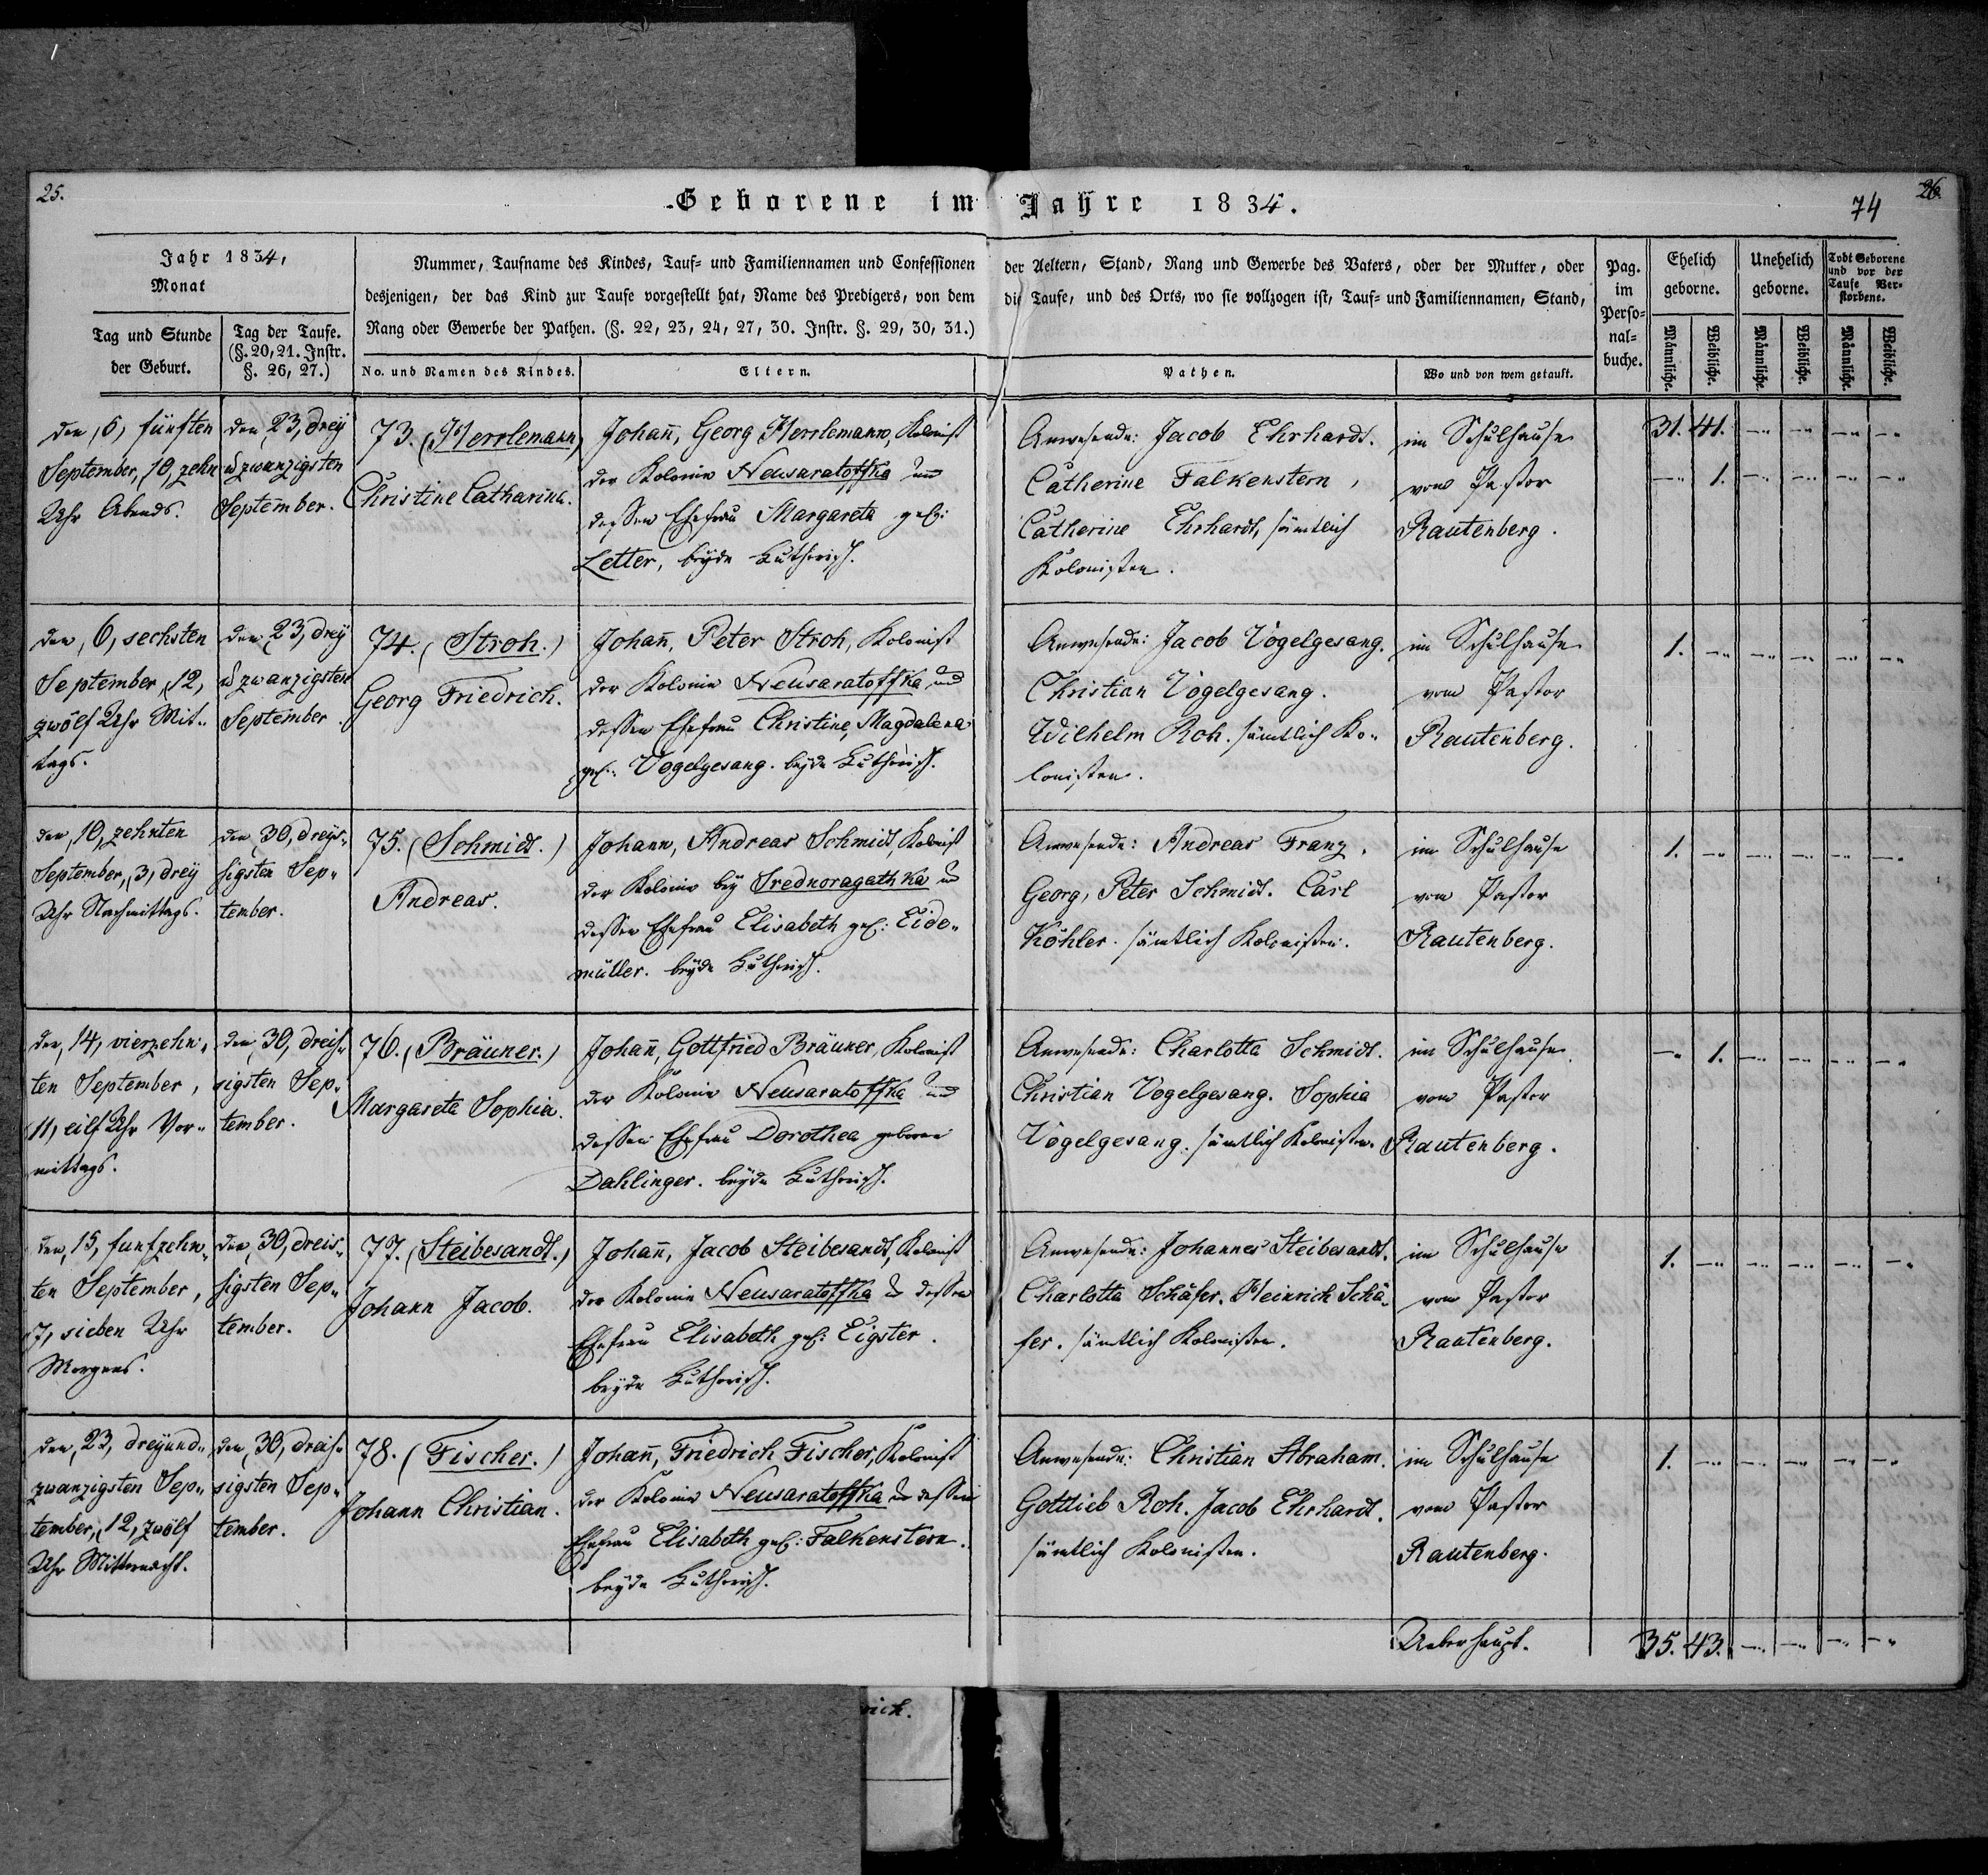 25.
Geborene im Jahre 1834.
74
26.
Jahr 1834,
Monat
Tag und Stunde
der Geburt.
Tag der Taufe.
(§. 20, 21. Instr.
§. 26, 27.)
Nummer, Taufname des Kindes, Tauf- und Familiennamen und Confessionen der Aeltern, Stand, Rang und Gewerbe des Vaters, oder der Mutter, oder
desjenigen, der das Kind zur Taufe vorgestellt hat, Name des Predigers, von dem die Taufe, und des Orts, wo sie vollzogen ist, Tauf- und Familiennamen, Stand,
Rang oder Gewerbe der Pathen. (§. 22, 23, 24, 27, 30. Instr. §. 29, 30, 31.)
No. und Namen des Kindes.
Eltern.
Pathen.
Wo und von wem getauft.
Pag.
im
Perso-
nal-
buche.
Ehelich
geborne.
Unehelich
geborne.
Todt Geborene
und vor der
Taufe Ver-
storbene.
Männliche.
Weibliche.
Männliche.
Weibliche.
Männliche.
Weibliche.
den, 5, fünften
September, 10, zehn
Uhr Abends.
den 23, drey
u zwanzigsten
September.
73. (Herrlemann)
Christine Catharina.
Johañ, Georg Herrlemann, Kolonist
der Kolonie Neusaratoffka und
dessen Ehefrau Margareta geb:
Letter, beyde Lutherisch.
Anwesende: Jacob Ehrhardt.
Catherine Falkenstern,
Catherine Ehrhardt, sämtlich
Kolonisten.
im Schulhause
vom Pastor
Rautenberg.
31. 41. -.. -.. -.. -..
-.. 1. -.. -.. -.. -..
den, 6, sechsten
September, 12,
zwölf Uhr Mit-
tags.
den 23, drey
u zwanzigsten
September.
74. (Stroh.)
Georg Friedrich.
Johañ, Peter Stroh, Kolonist
der Kolonie Neusaratoffka und
dessen Ehefrau Christine, Magdalena
geb: Vogelgesang. beyde Lutherisch.
Anwesende: Jacob Vogelgesang.
Christian Vogelgesang.
Wilhelm Roh. sämtlich Ko-
lonisten.
im Schulhause
vom Pastor
Rautenberg.
1. -.. -.. -.. -.. -..
den, 10, zehnten
September, 3, drey
Uhr Nachmittags.
den 30, dreys-
sigsten Sep-
tember.
75. (Schmidt.)
Andreas.
Johann, Andreas Schmidt, Kolonist
der Kolonie bey Srednoragathka u
dessen Ehefrau Elisabeth geb: Eide-
müller. beyde Lutherisch.
Anwesende: Andreas Franz.
Georg, Peter Schmidt. Carl
Köhler. sämtlich Kolonisten.
im Schulhause
vom Pastor
Rautenberg.
1. -.. -.. -.. -.. -..
den, 14, vierzehn-
ten September,
11, eilf Uhr Vor-
mittags.
den, 30, dreis-
sigsten Sep-
tember.
76. (Bräuner.)
Margareta Sophia.
Johañ, Gottfried Bräuner, Kolonist
der Kolonie Neusaratoffka und
dessen Ehefrau Dorothea geborne
Dahlinger. beyde Lutherisch.
Anwesende: Charlotta Schmidt.
Christian Vogelgesang. Sophia
Vogelgesang. sämtlich Kolonisten.
im Schulhause
vom Pastor
Rautenberg.
-.. 1. -.. -.. -.. -..
den, 15, funfzehn-
ten September,
7, sieben Uhr
Morgens.
den, 30, dreis-
sigsten Sep-
tember.
77. (Steibesandt.)
Johann Jacob.
Johañ, Jacob Steibesandt, Kolonist
der Kolonie Neusaratoffka u dessen
Ehefrau Elisabeth geb: Eigster.
beyde Lutherisch.
Anwesende: Johannes Steibesandt.
Charlotta Schäfer. Heinrich Schä-
fer. sämtlich Kolonisten.
im Schulhause
vom Pastor
Rautenberg.
1. -.. -.. -.. -.. -..
den, 23, dreyund-
zwanzigsten Sep-
tember, 12, zwölf
Uhr Mitternacht.
den, 30, dreis-
sigsten Sep-
tember.
78. (Fischer.)
Johann Christian.
Johañ, Friedrich Fischer, Kolonist
der Kolonie Neusaratoffka u dessen
Ehefrau Elisabeth geb: Falkenstern.
beyde Lutherisch.
Anwesende: Christian Abraham.
Gottlieb Roh. Jacob Ehrhardt.
sämtlich Kolonisten.
im Schulhause
vom Pastor
Rautenberg.
1. -.. -.. -.. -.. -..
Ueberhaupt. 35. 43. -.. -.. -.. -..
rich.